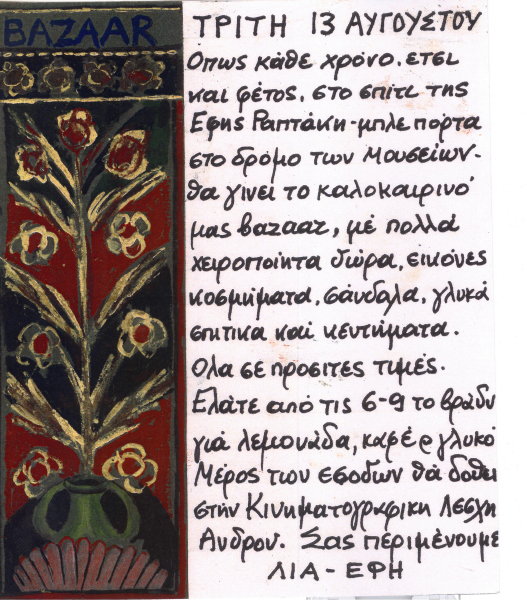 BAZAAR
ΤΡΙΤΗ 13 ΑΥΓΟΥΣΤΟΥ
Οπως κάθε χρόνο. ετσι
και φέτος, στο σπίτι της
Εφης Ραπτάκη-μπλε πόρτα
στο δρόμο των Μουσείων-
θα γίνει το καλοκαιρινό
μας bazaar, μέ πολλά
χειροποίητα δώρα, εικόνες
κοσμήματα, σάνδαλα, γλυκά
σπιτικά και κεντήματα.
Ολα σε προσιτες τιμές.
Ελάτε από τις 6-9 το βράδυ
γιά λεμονάδα, καφέ & γλυκό
Μέρος των εσόδων θά δοθεί
στήν Κινηματογραφικη Λεσχη
Ανδρου. Σας περιμένουμε
ΛΙΑ - ΕΦΗ